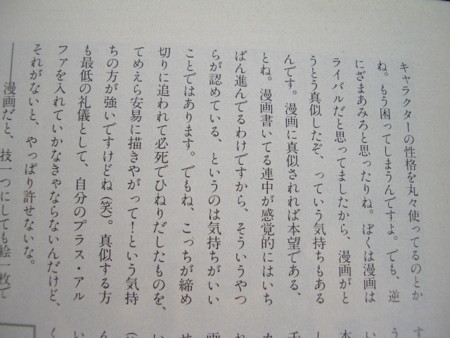 キャラクターの性格を丸々使ってるのとか
ね。もう困ってしまうんですよ。でも、逆
にざまあみろと思ったりね。ぼくは漫画は
ライバルだと思ってましたから、漫画がと
うとう真似したぞ、っていう気持ちもある
んです。漫画に真似されれば本望である、
とね。漫画書いてる連中が感覚的にはいち
ばん進んでるわけですから、そういうやつ
らが認めている、というのは気持ちがいい
ことではあります。でもね、こっちが締め
切りに追われて必死でひねりだしたものを、
てめえら安易に描きやがって!という気持
ちの方が強いですけどね(笑)。真似する方
も最低の礼儀として、自分のプラス・アル
ファを入れていかなきゃならないんだけど、
それがないと、やっぱり許せないな。
漫画だと、技一つにしても絵一枚で